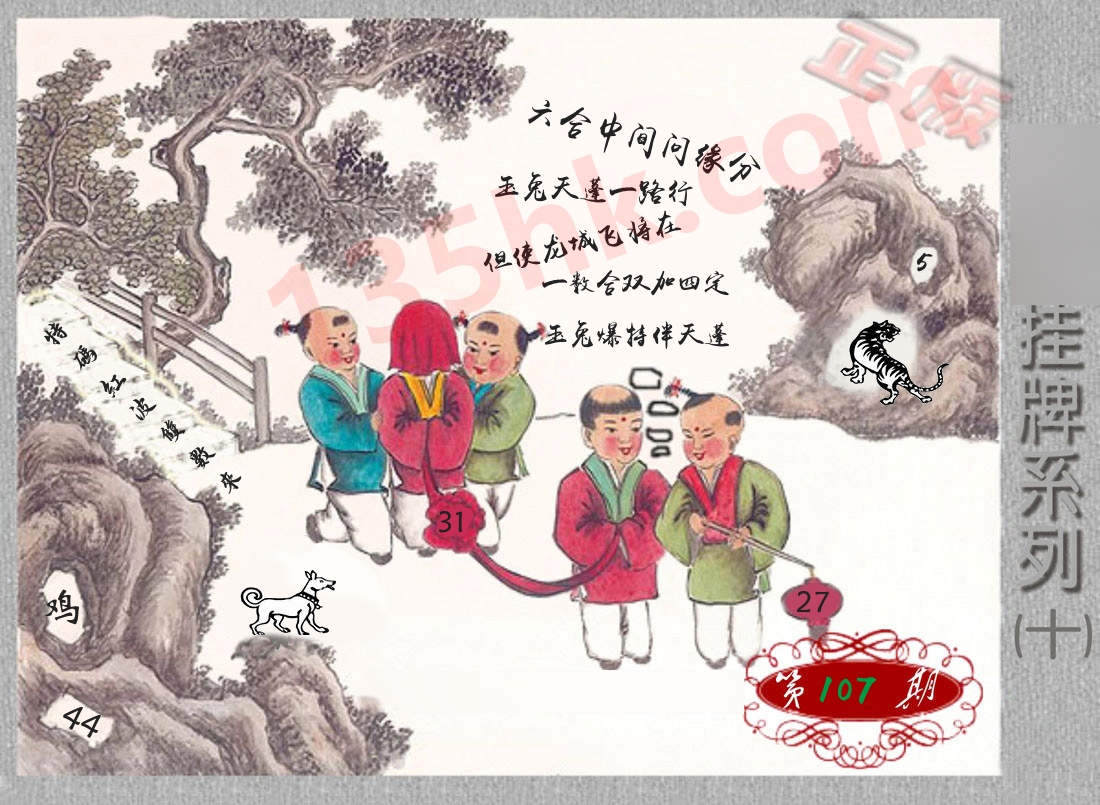 正版
135hk.com
六合中间问缘分
玉兔天蓬一路行
但使龙城飞将在
一数合双加四定
玉兔爆特伴天蓬
5
特碼紅波雙數来
挂牌系列(十)
31
27
鸡
44
第107期